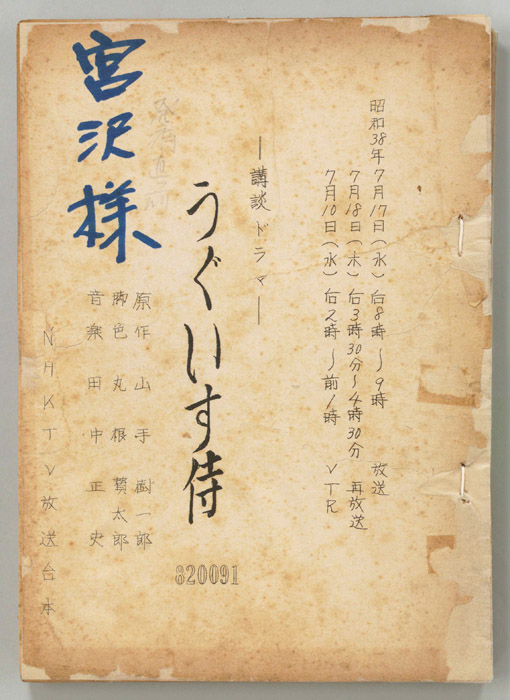 昭和38年7月17日(水)后8時〜9時 放送
7月18日(木)后3時30分〜4時30分 再放送
7月10日(水)后2時〜前1時 VTR
―講談ドラマ―
うぐいす侍
820091
原作 山手樹一郎
脚色 丸根賛太郎
音楽 田中正史
NHKTV放送台本
宮沢様